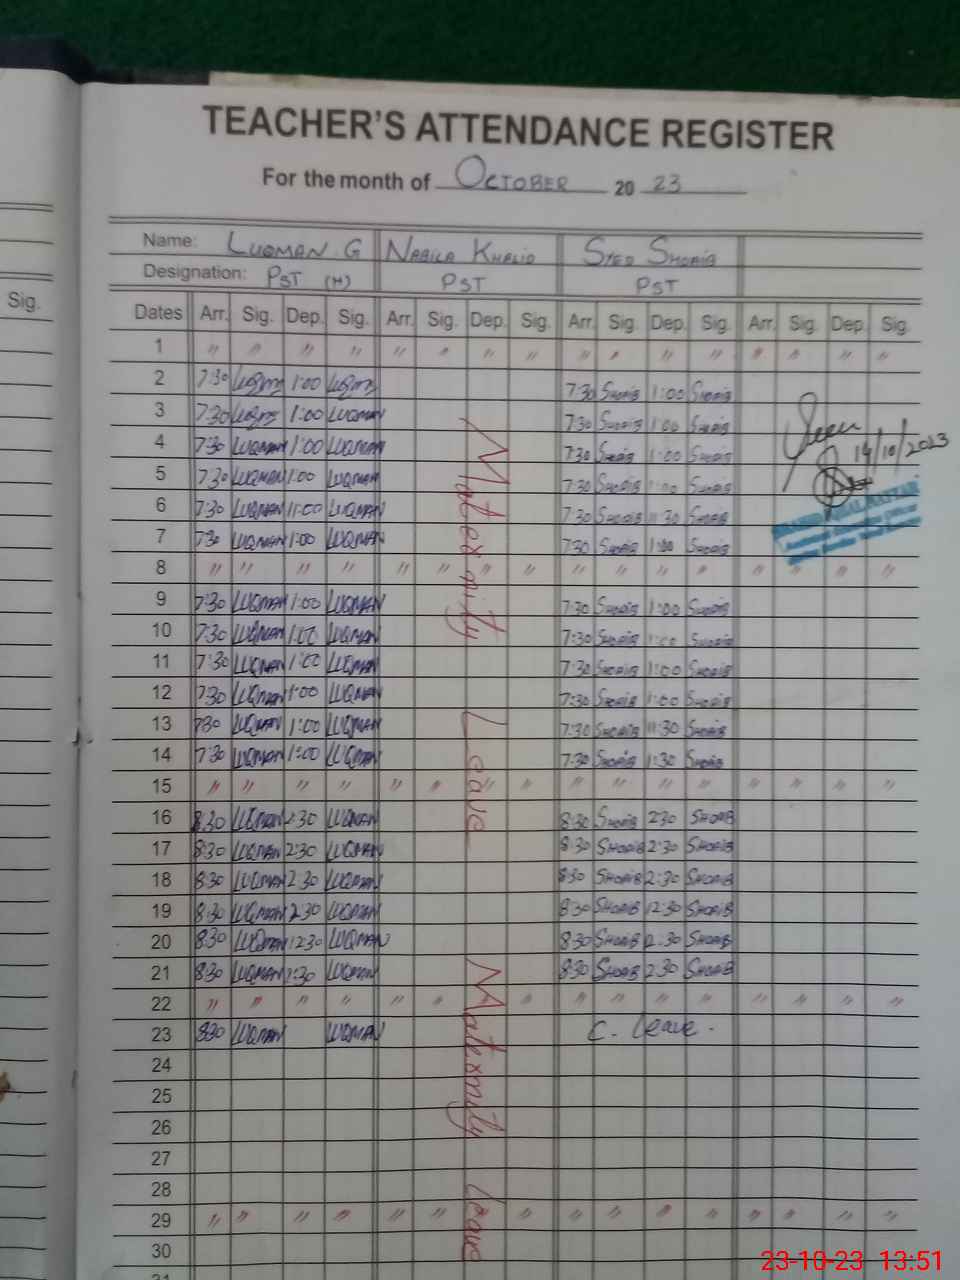 TEACHER'S ATTENDANCE REGISTER
For the month of OCTOBER 20 23
Name: LUQMAN. G NABILA KHALID SYED SHOAIB
Designation: PST (M) PST PST
Sig.
Dates Arr. Sig. Dep. Sig. Arr. Sig. Dep. Sig. Arr. Sig. Dep. Sig. Arr. Sig. Dep. Sig.
1 " " " " " " " " " " " " " " " "
2 7:30 1:00 7:30 SHOAIB 1:00 SHOAIB
3 7:30 1:00 LUQMAN 7:30 SHOAIB 1:00 SHOAIB
4 7:30 LUQMAN 1:00 LUQMAN 7:30 SHOAIB 1:00 SHOAIB
14/10/2023
5 7:30 LUQMAN 1:00 LUQMAN 7:30 SHOAIB 1:00 SHOAIB
6 7:30 LUQMAN 11:00 LUQMAN 7:30 SHOAIB 11:30 SHOAIB
7 7:30 LUQMAN 1:00 LUQMAN 7:30 SHOAIB 1:00 SHOAIB
Maternity Leave
8 " " " " " " " " " " " " " " " "
9 7:30 LUQMAN 1:00 LUQMAN 7:30 SHOAIB 1:00 SHOAIB
10 7:30 LUQMAN 1:00 LUQMAN 7:30 SHOAIB 1:00 SHOAIB
11 7:30 LUQMAN 1:00 LUQMAN 7:30 SHOAIB 1:00 SHOAIB
12 7:30 LUQMAN 1:00 LUQMAN 7:30 SHOAIB 1:00 SHOAIB
13 7:30 LUQMAN 1:00 LUQMAN 7:30 SHOAIB 11:30 SHOAIB
14 7:30 LUQMAN 1:00 LUQMAN 7:30 SHOAIB 1:30 SHOAIB
15 " " " " " " " " " " " " " " "
16 8:30 LUQMAN 2:30 LUQMAN 8:30 SHOAIB 2:30 SHOAIB
17 8:30 LUQMAN 2:30 LUQMAN 8:30 SHOAIB 2:30 SHOAIB
18 8:30 LUQMAN 2:30 LUQMAN 8:30 SHOAIB 2:30 SHOAIB
19 8:30 LUQMAN 2:30 LUQMAN 8:30 SHOAIB 12:30 SHOAIB
20 8:30 LUQMAN 12:30 LUQMAN 8:30 SHOAIB 2:30 SHOAIB
21 8:30 LUQMAN 2:30 LUQMAN 8:30 SHOAIB 2:30 SHOAIB
22 " " " " " " " " " " " " " " "
23 8:30 LUQMAN LUQMAN C. Leave.
Maternity Leave
24
25
26
27
28
29 " " " " " " " " " " " " " " "
30
31
23-10-23 13:51